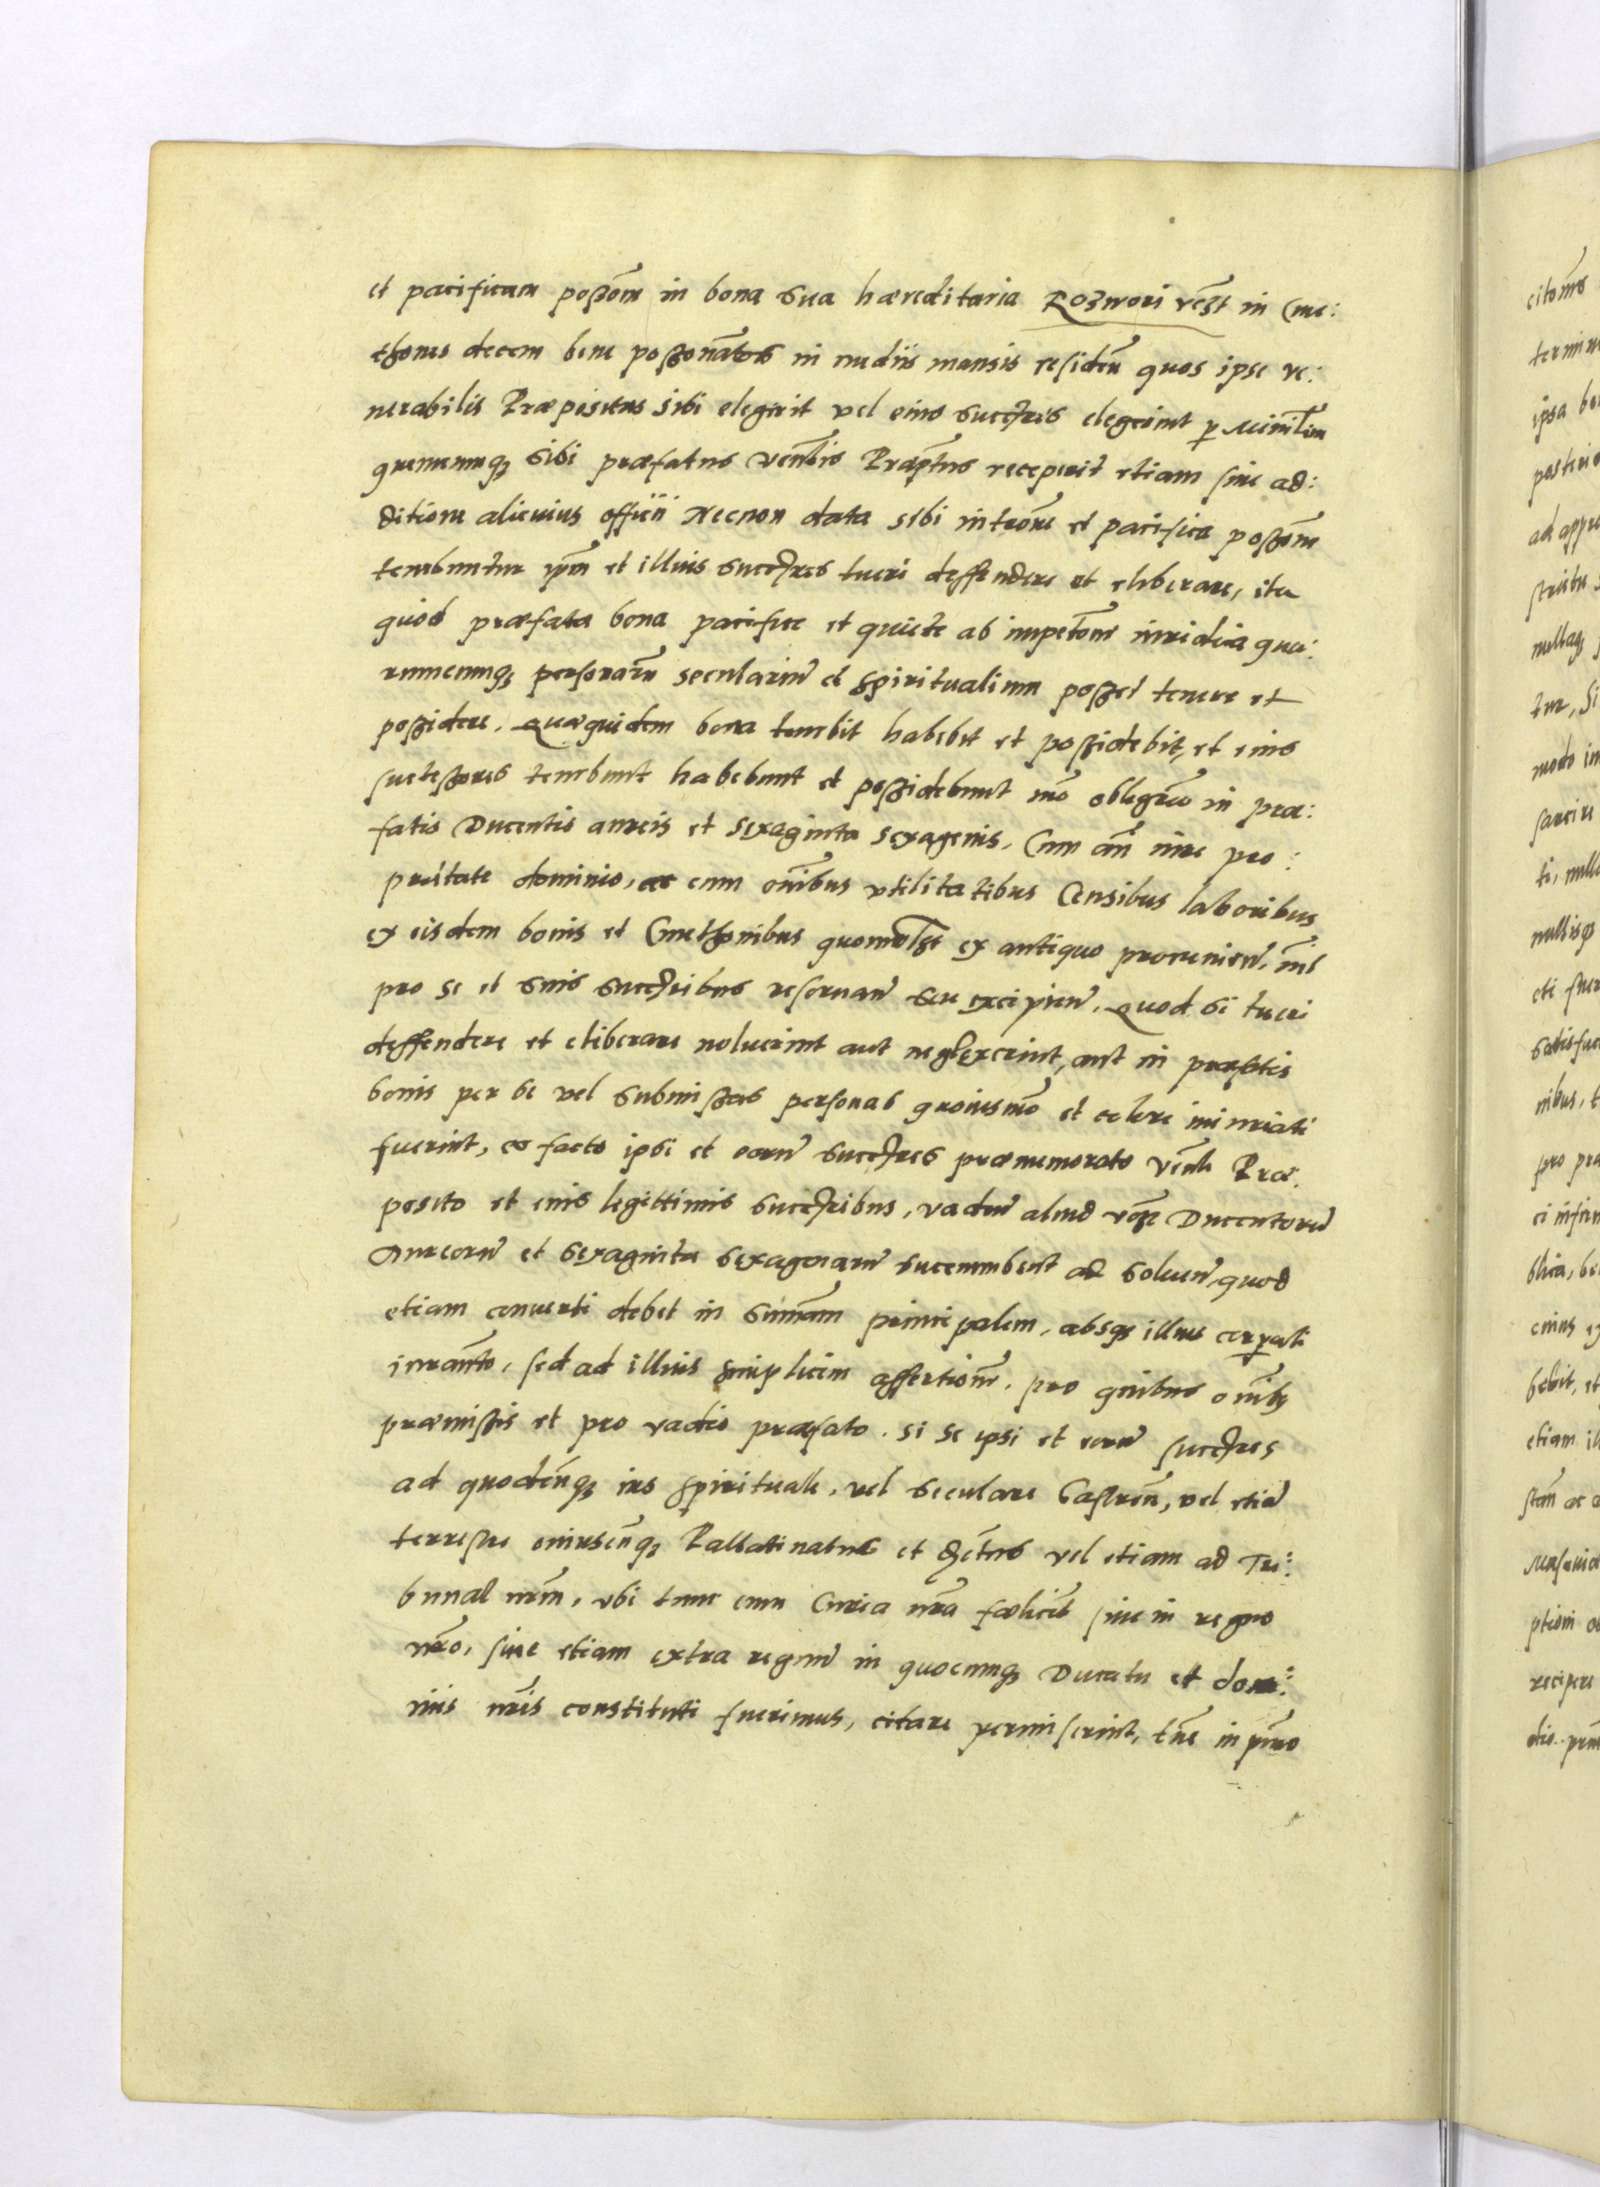 et pacificam possom in bona sua hæreditaria Rozwori vezt in Cme:
thones decem bene possonatos in mediis mansis residen quos ipse ve:
nerabilis Præpositus sibi elegerit vel eius succres elegerint p Ministm
quemcunq sibi præfatus venblis Præptus receperit etiam sine ad:
ditione alicuius officii Necnon data sibi introne et pacifica possone
tenebuntur ipm et illius succres tueri deffendere et eliberare, ita
quod præfata bona pacifice et quiete ab impetone iuridica quo:
rumcunq personarum secularium et spiritualium posset tenere et
possidere. Quæquidem bona tenebit habebit et possidebit, et eius
successores tenebunt habebunt et possidebunt mo obligrio in præ:
fatis Ducentis aureis et sexaginta sexagenis, Cum omi iure pro:
prietate dominio, ac cum omibus vtilitatibus Censibus laboribus
ex eisdem bonis et Cmethonibus quomolzt ex antiquo prouenien, nil
pro se et suis succribus reseruan seu excipien. Quod si tueri
deffendere et eliberare noluerint aut neglexerint, aut in præfatis
bonis per se vel submissas personas quouismo et colore iniuriati
fuerint, eo facto ipsi et eorum succres præmemorato venli Præ:
posito et eius legittimis succribus, vadium aliud rose Ducentorum
Aureorum et sexaginta sexagenarum succumbent ad soluen, quod
etiam conuerti debet in summam principalem, absq illius corporali
iuramto, sed ad illius simplicem assertionem. pro quibus omib
præmissis et pro vadio præfato. si se ipsi et eorum succres
ad quodcunq ius spirituale, vel seculare Castren, vel etiam
terrestre cuiuscunq Pallatinatus et Dctus vel etiam ad Tri:
bunal nrm, vbi tunc cum Curia nra fœlicit siue in regno
nro, siue etiam extra regnum in quocunq Ducatu et domi:
niis nris constituti fuerimus, citare permiserint, tnc in pmo